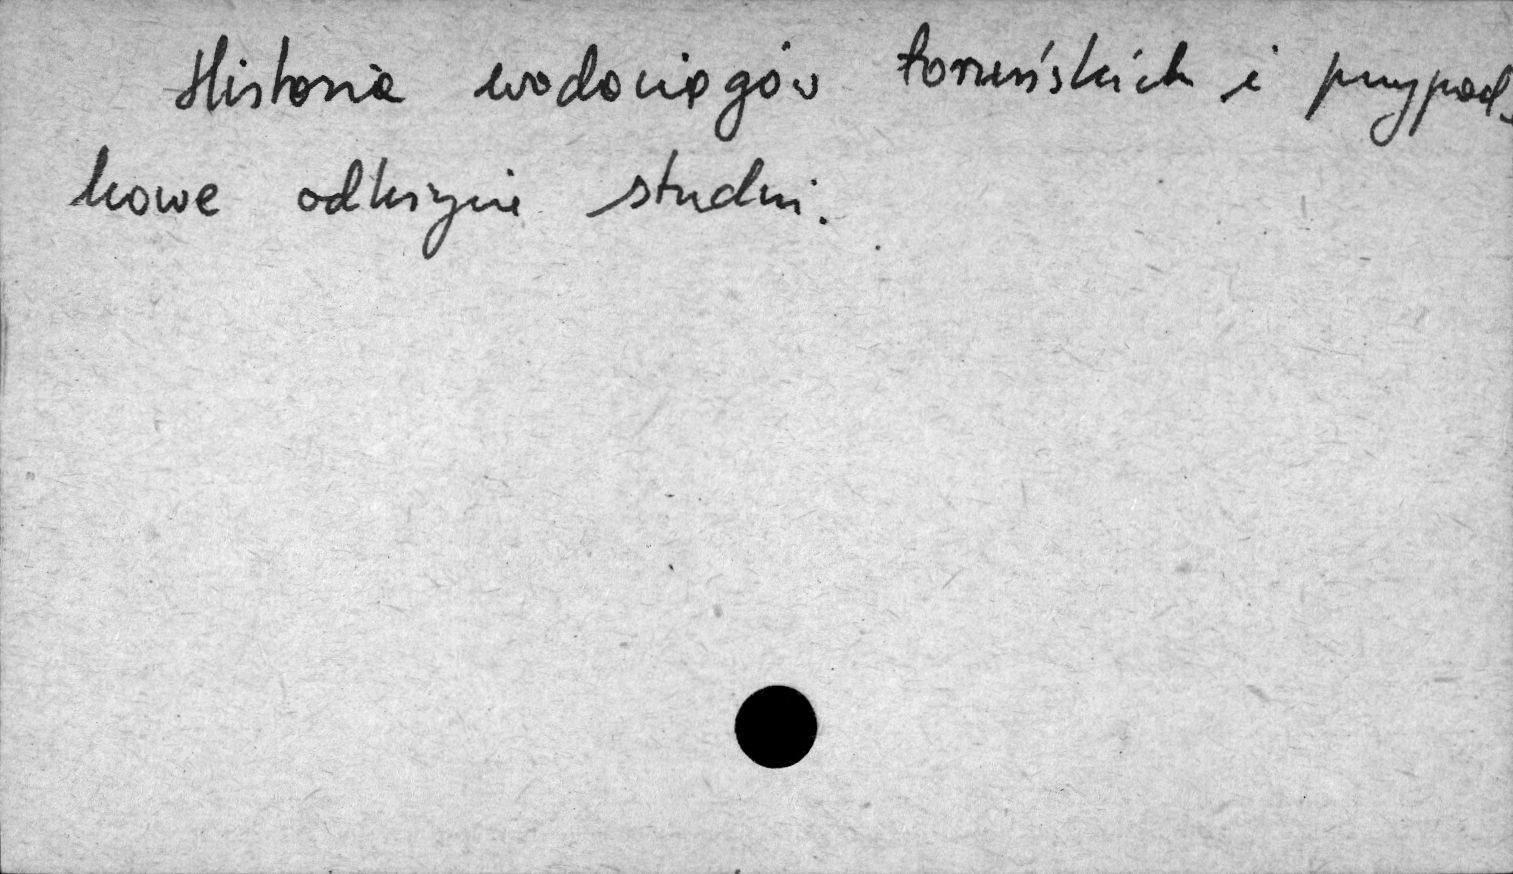 Historia wodociągów toruńskich i przypad-
kowe odkrycie studni.